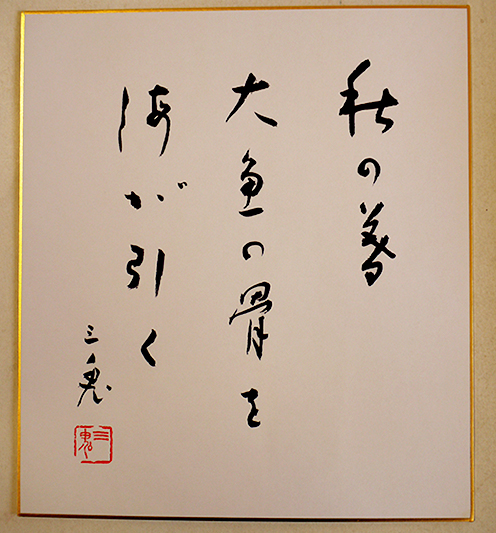 秋の暮
大魚の骨を
海が引く
三鬼
三鬼